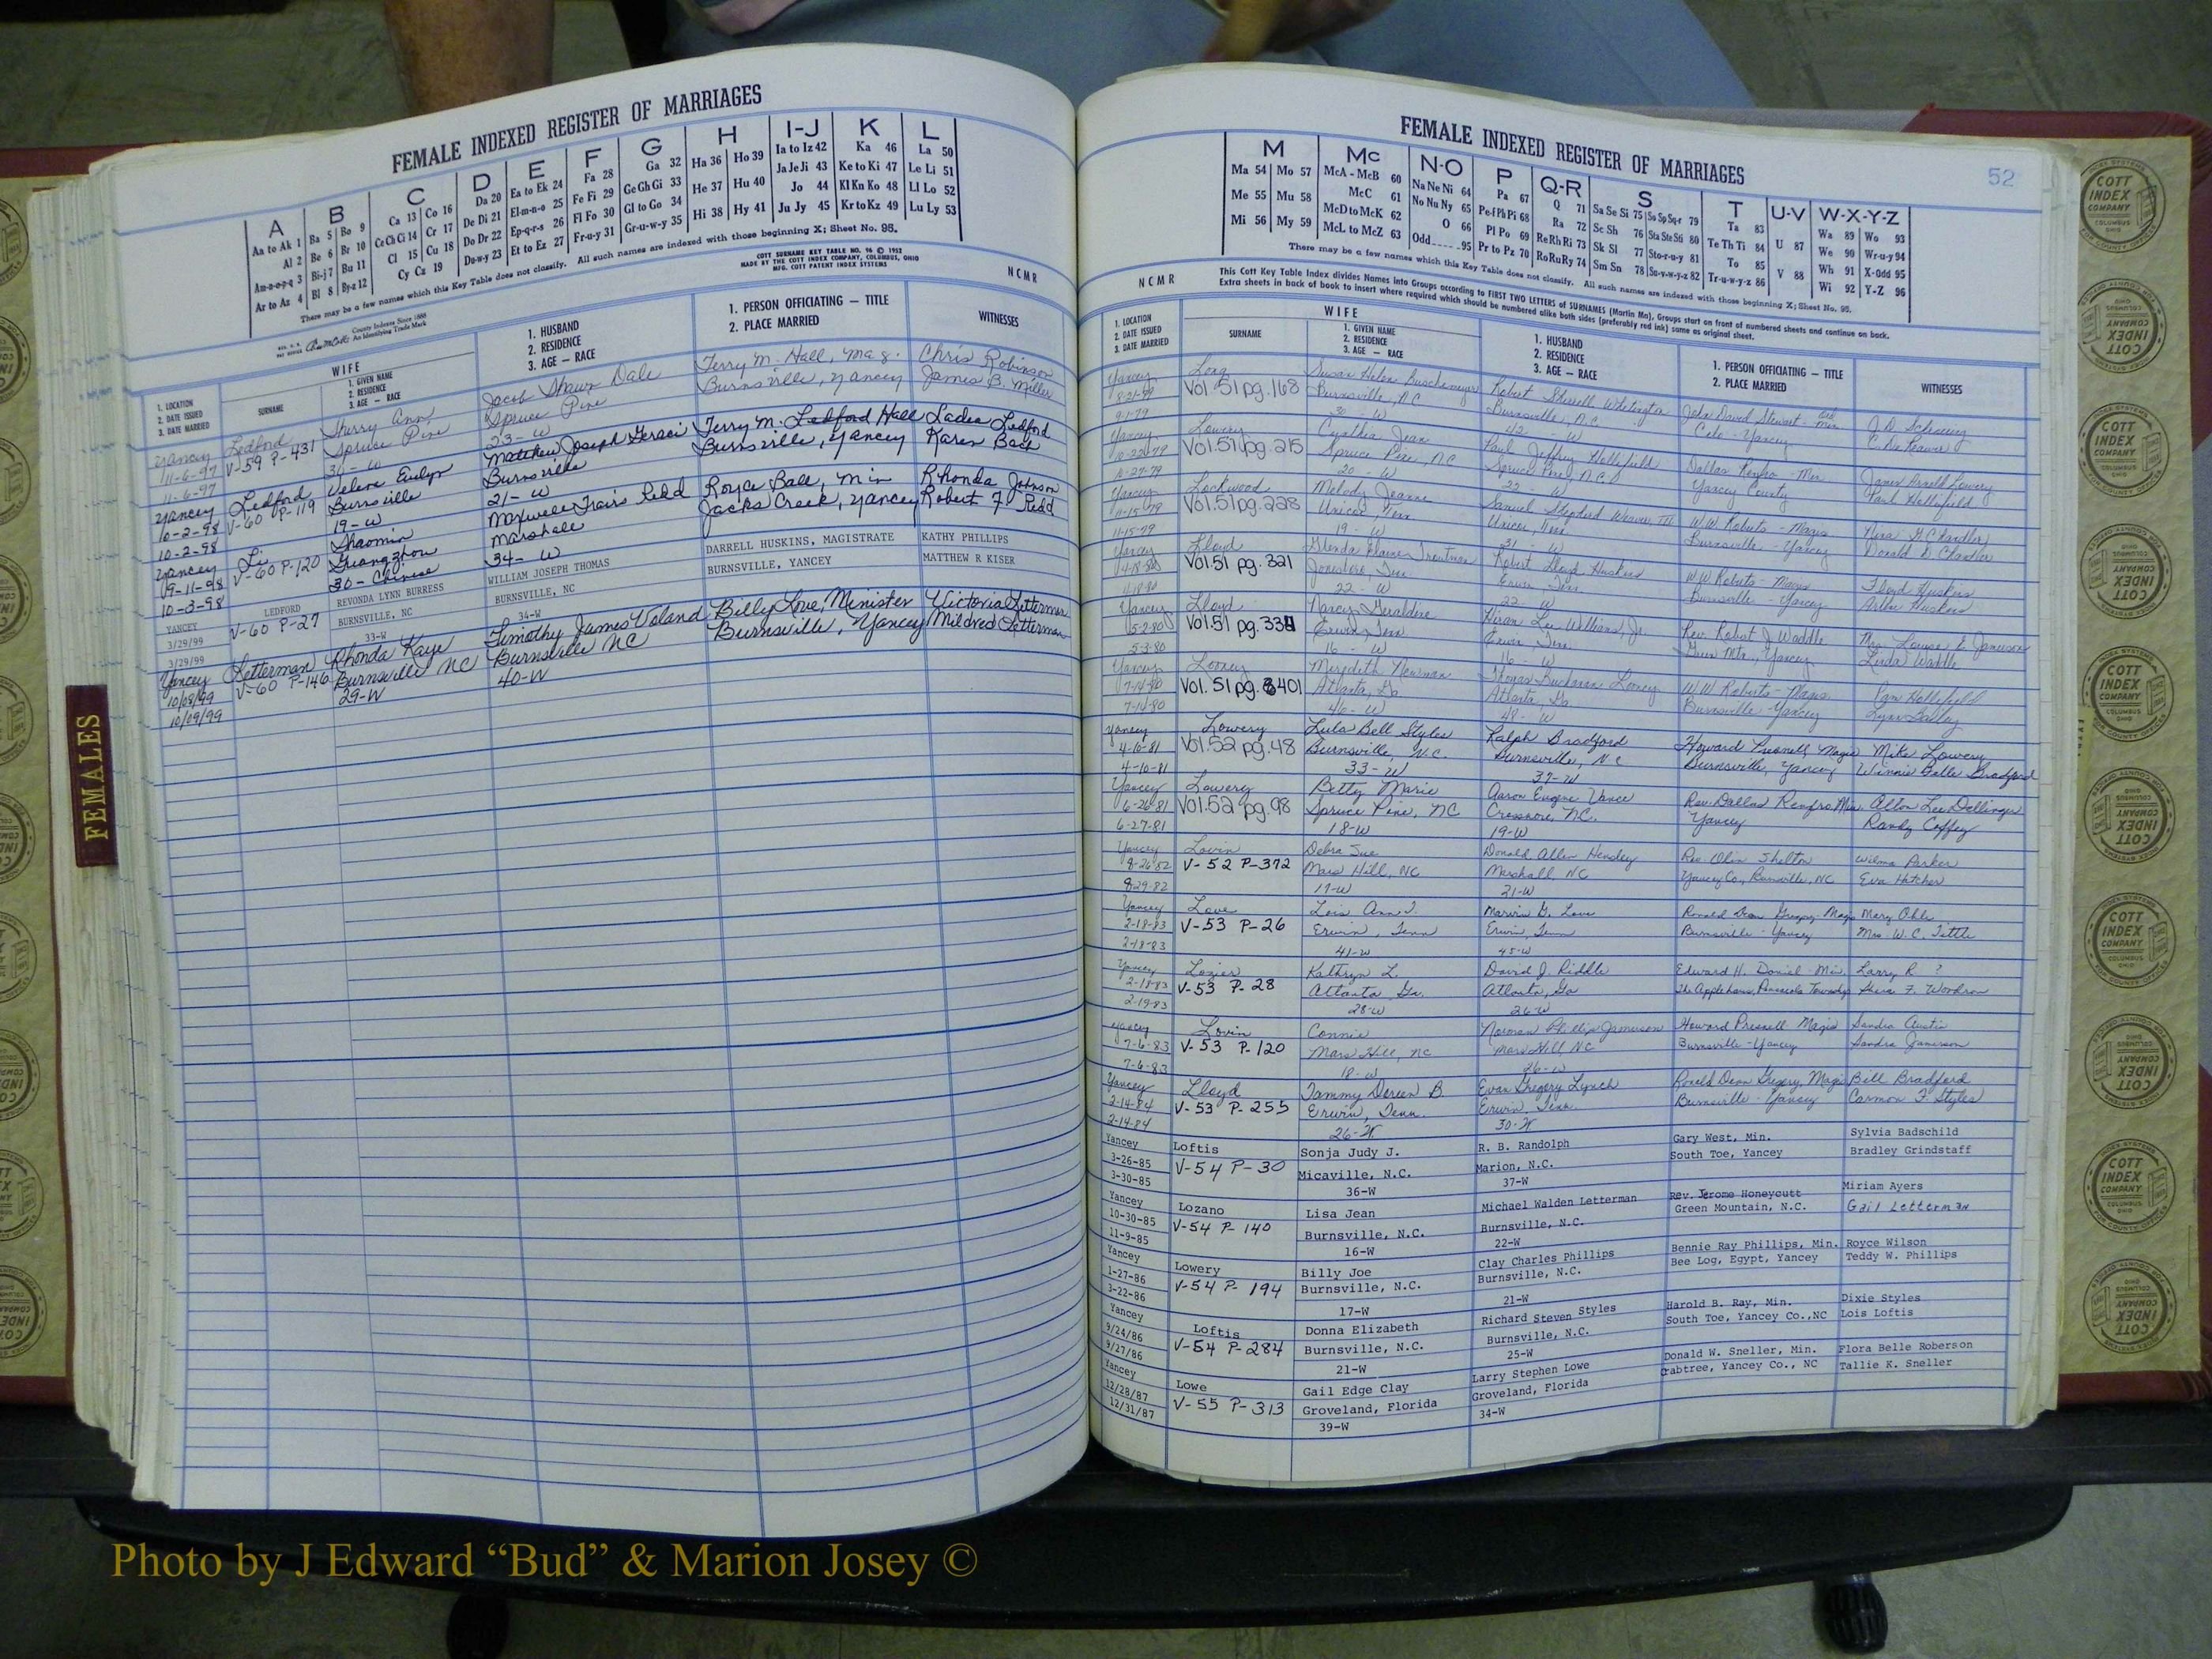 FEMALE INDEXED REGISTER OF MARRIAGES
A
Aa to Ak 1
Al 2
Am-n-o-p-q 3
Ar to Az 4
B
Ba 5 Bo 9
Be 6 Br 10
Bi-j 7 Bu 11
Bl 8 By-z 12
C
Ca 13 Co 16
Ce Ch Ci 14 Cr 17
Cl 15 Cu 18
Cy Cz 19
D
Da 20
De Di 21
Do Dr 22
Du-w-y 23
E
Ea to Ek 24
El-m-n-o 25
Ep-q-r-s 26
Et to Ez 27
F
Fa 28
Fe Fi 29
Fl Fo 30
Fr-u-y 31
G
Ga 32
Ge Gh Gi 33
Gl to Go 34
Gr-u-w-y 35
H
Ha 36 Ho 39
He 37 Hu 40
Hi 38 Hy 41
I-J
Ia to Iz 42
Ja Je Ji 43
Jo 44
Ju Jy 45
K
Ka 46
Ke to Ki 47
Kl Kn Ko 48
Kr to Kz 49
L
La 50
Le Li 51
Ll Lo 52
Lu Ly 53
There may be a few names which this Key Table does not classify. All such names are indexed with those beginning X; Sheet No. 95.
COTT SURNAME KEY TABLE NO. 96 © 1952
MADE BY THE COTT INDEX COMPANY, COLUMBUS, OHIO
MFG. COTT PATENT INDEX SYSTEMS
NCMR
County Indexes Since 1888
An Identifying Trade Mark
1. LOCATION
2. DATE ISSUED
3. DATE MARRIED
WIFE
SURNAME
1. GIVEN NAME
2. RESIDENCE
3. AGE — RACE
1. HUSBAND
2. RESIDENCE
3. AGE — RACE
1. PERSON OFFICIATING — TITLE
2. PLACE MARRIED
WITNESSES
Yancey Ledford Sherry Ann Jacob Shawn Dale Terry M. Hall, Mag. Chris Robinson
11-6-97 V-59 P-431 Spruce Pine Spruce Pine Burnsville, Yancey James B. Miller
11-6-97 30-W 23-W
Yancey Ledford Velene Evelyn Matthew Joseph Geraci Terry M. Ledford Hall Ladea Ledford
10-2-98 V-60 P-119 Burnsville Burnsville Burnsville, Yancey Karen Back
10-2-98 19-W 21-W
Yancey Li Shaomin Maxwell Travis Redd Royce Ball, Min Rhonda Johnson
9-11-98 V-60 P-120 Guangzhou Marshall Jacks Creek, Yancey Robert F. Redd
10-3-98 30-Chinese 34-W
YANCEY LEDFORD REVONDA LYNN BURRESS WILLIAM JOSEPH THOMAS DARRELL HUSKINS, MAGISTRATE KATHY PHILLIPS
3/29/99 V-60 P-27 BURNSVILLE, NC BURNSVILLE, NC BURNSVILLE, YANCEY MATTHEW R KISER
3/29/99 33-W 34-W
Yancey Letterman Rhonda Kaye Timothy James Voland Billy Love, Minister Victoria Letterman
10/08/99 V-60 P-146 Burnsville NC Burnsville NC Burnsville, Yancey Mildred Letterman
10/09/99 29-W 40-W
FEMALES
FEMALE INDEXED REGISTER OF MARRIAGES
52
M
Ma 54 Mo 57
Me 55 Mu 58
Mi 56 My 59
Mc
McA - McB 60
McC 61
McD to McK 62
McL to McZ 63
N-O
Na Ne Ni 64
No Nu Ny 65
O 66
Odd 95
P
Pa 67
Pe-f Ph Pi 68
Pl Po 69
Pr to Pz 70
Q-R
Q 71
Ra 72
Re Rh Ri 73
Ro Ru Ry 74
S
Sa Se Si 75 So Sp Sq-r 79
Sc Sh 76 Sta Ste Sti 80
Sk Sl 77 Sto-r-u-y 81
Sm Sn 78 Su-v-w-y-z 82
T
Ta 83
Te Th Ti 84
To 85
Tr-u-w-y-z 86
U-V
U 87
V 88
W-X-Y-Z
Wa 89 Wo 93
We 90 Wr-u-y 94
Wh 91 X-Odd 95
Wi 92 Y-Z 96
There may be a few names which this Key Table does not classify. All such names are indexed with those beginning X; Sheet No. 95.
NCMR
This Cott Key Table Index divides Names into Groups according to FIRST TWO LETTERS of SURNAMES (Martin Ma), Groups start on front of numbered sheets and continue on back.
Extra sheets in back of book to insert where required which should be numbered alike both sides (preferably red ink) same as original sheet.
1. LOCATION
2. DATE ISSUED
3. DATE MARRIED
WIFE
SURNAME
1. GIVEN NAME
2. RESIDENCE
3. AGE — RACE
1. HUSBAND
2. RESIDENCE
3. AGE — RACE
1. PERSON OFFICIATING — TITLE
2. PLACE MARRIED
WITNESSES
Yancey Long Susan Helen Robert Sherrell Whitington John David Stewart
8-21-79 Vol. 51 pg. 168 Burnsville, NC Burnsville, N.C. Yancey
9-1-79 30-W 42 W
Yancey Lowery Cynthia Jean Paul Jeffrey Hollifield Dallas Renfro - Min. James Arnold Lowery
10-22-79 Vol. 51 pg. 215 Spruce Pine NC Spruce Pine, N.C. Yancey County Paul Hollifield
10-27-79 20-W 22 W
Yancey Lockwood Melody Jeanne Samuel Stepherd Weaver, III W.W. Roberts - Magis Nina G. Chandler
11-15-79 Vol. 51 pg. 228 Unicoi, Tenn Unicoi, Tenn Burnsville - Yancey Donald D. Chandler
11-15-79 19-W 31-W
Yancey Lloyd Glenda Elaine Troutman Robert Lloyd Huskins W.W. Roberts - Magis Floyd Huskins
4-18-80 Vol. 51 pg. 321 Jonesboro, Tenn Erwin Tenn Burnsville - Yancey Huskins
4-18-80 22-W 22-W
Yancey Lloyd Nancy Geraldine Hiram Lee Williams, Jr. Rev. Robert J. Waddle Mrs. Louise E. Jamerson
5-2-80 Vol. 51 pg. Erwin, Tenn Erwin, Tenn Green Mtn., Yancey Linda Waddle
5-3-80 16-W 16-W
Yancey Looney Meredith Newman Thomas Buchanan Looney W.W. Roberts - Magis. Pam Hollifield
7-14-80 Vol. 51 pg. 401 Atlanta, Ga Atlanta, Ga Burnsville - Yancey
7-14-80 46-W 48-W
Yancey Lowery Lula Bell Styles Ralph Bradford Howard Presnell Magis Mike Lowery
4-10-81 Vol. 52 pg. 48 Burnsville, N.C. Burnsville, N.C. Burnsville, Yancey Winnie Belle Bradford
4-10-81 33-W 37-W
Yancey Lowery Betty Marie Aaron Eugene Vance Rev. Dallas Renfro, Min. Alton Lee Dellinger
6-26-81 Vol. 52 pg. 98 Spruce Pine, NC Crossnore, N.C. Yancey Randy Coffey
6-27-81 18-W 19-W
Yancey Lovin Debra Sue Donald Allen Hensley Rev Olin Shelton Wilma Parker
8-26-82 V-52 P-372 Mars Hill, NC Marshall, NC Yancey Co., Burnsville, NC Eva Hatcher
8-29-82 17-W 21-W
Yancey Love Lois Ann T. Marvin G. Love Ronald Dean Gregory - Magis Mary Ohle
2-18-83 V-53 P-26 Erwin, Tenn Erwin, Tenn Burnsville - Yancey Mrs. W.C. Tittle
2-18-83 41-W 45-W
Yancey Lozier Kathryn L. David J. Riddle Edward H. Daniel - Min. Larry R. ?
2-18-83 V-53 P-28 Atlanta Ga. Atlanta, Ga Pensacola Township
2-19-83 28-W 26-W
Yancey Lovin Connie Norman Phillip Jamerson Howard Presnell Magis Sandra Austin
7-6-83 V-53 P-120 Mars Hill, NC Mars Hill, NC Burnsville - Yancey Sandra Jamerson
7-6-83 18-W 26-W
Yancey Lloyd Tammy Doreen B. Evan Gregory Lynch Ronald Dean Gregory, Magis Bill Bradford
2-14-84 V-53 P-255 Erwin, Tenn. Erwin, Tenn. Burnsville - Yancey Carmon F. Styles
2-14-84 26-W 30-W
Yancey Loftis Sonja Judy J. R. B. Randolph Gary West, Min. Sylvia Badschild
3-26-85 V-54 P-30 Micaville, N.C. Marion, N.C. South Toe, Yancey Bradley Grindstaff
3-30-85 36-W 37-W
Yancey Lozano Lisa Jean Michael Walden Letterman Rev. Jerome Honeycutt Miriam Ayers
10-30-85 V-54 P-140 Burnsville, N.C. Burnsville, N.C. Green Mountain, N.C. Gail Letterman
11-9-85 16-W 22-W
Yancey Lowery Billy Joe Clay Charles Phillips Bennie Ray Phillips, Min. Royce Wilson
1-27-86 V-54 P-194 Burnsville, N.C. Burnsville, N.C. Bee Log, Egypt, Yancey Teddy W. Phillips
3-22-86 17-W 21-W
Yancey Loftis Donna Elizabeth Richard Steven Styles Harold B. Ray, Min. Dixie Styles
9/24/86 V-54 P-284 Burnsville, N.C. Burnsville, N.C. South Toe, Yancey Co.,NC Lois Loftis
9/27/86 21-W 25-W
Yancey Lowe Gail Edge Clay Larry Stephen Lowe Donald W. Sneller, Min. Flora Belle Roberson
12/28/87 V-55 P-313 Groveland, Florida Groveland, Florida Crabtree, Yancey Co., NC Tallie K. Sneller
12/31/87 39-W 34-W
COTT INDEX COMPANY
COLUMBUS OHIO
INDEX SYSTEMS FOR COUNTY OFFICES
Photo by J Edward “Bud” & Marion Josey ©